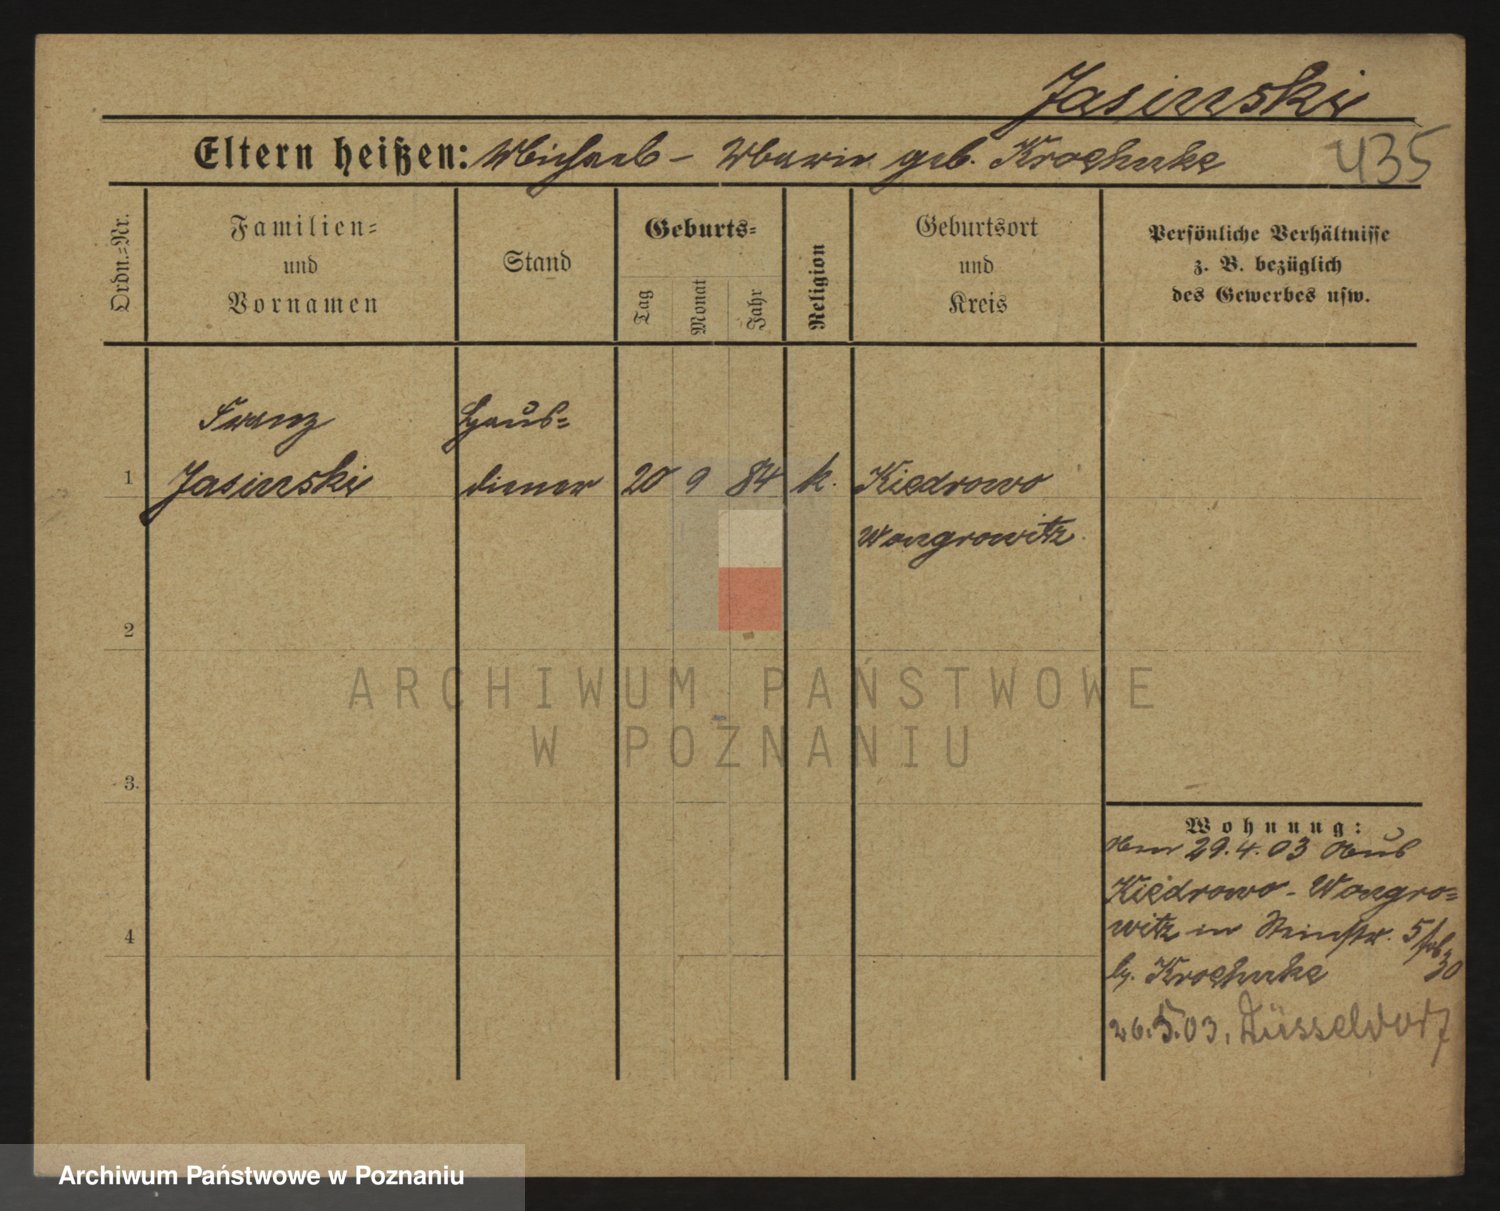 Jasinski
Eltern heißen: Michael – Marie geb. Kroehnke
435
Ordn.=Nr.
Familien=
und
Vornamen
Stand
Geburts=
Tag
Monat
Jahr
Religion
Geburtsort
und
Kreis
Persönliche Verhältnisse
z. B. bezüglich
des Gewerbes usw.
Franz
Haus=
1 Jasinski diener 20 9 84 k. Kiedrowo
Wongrowitz
2
3.
4
Wohnung:
29.4.03 aus
Kiedrowo - Wongro=
witz in 5
b. Kroehnke 30
26.5.03. Düsseldorf
ARCHIWUM PAŃSTWOWE
W POZNANIU
Archiwum Państwowe w Poznaniu